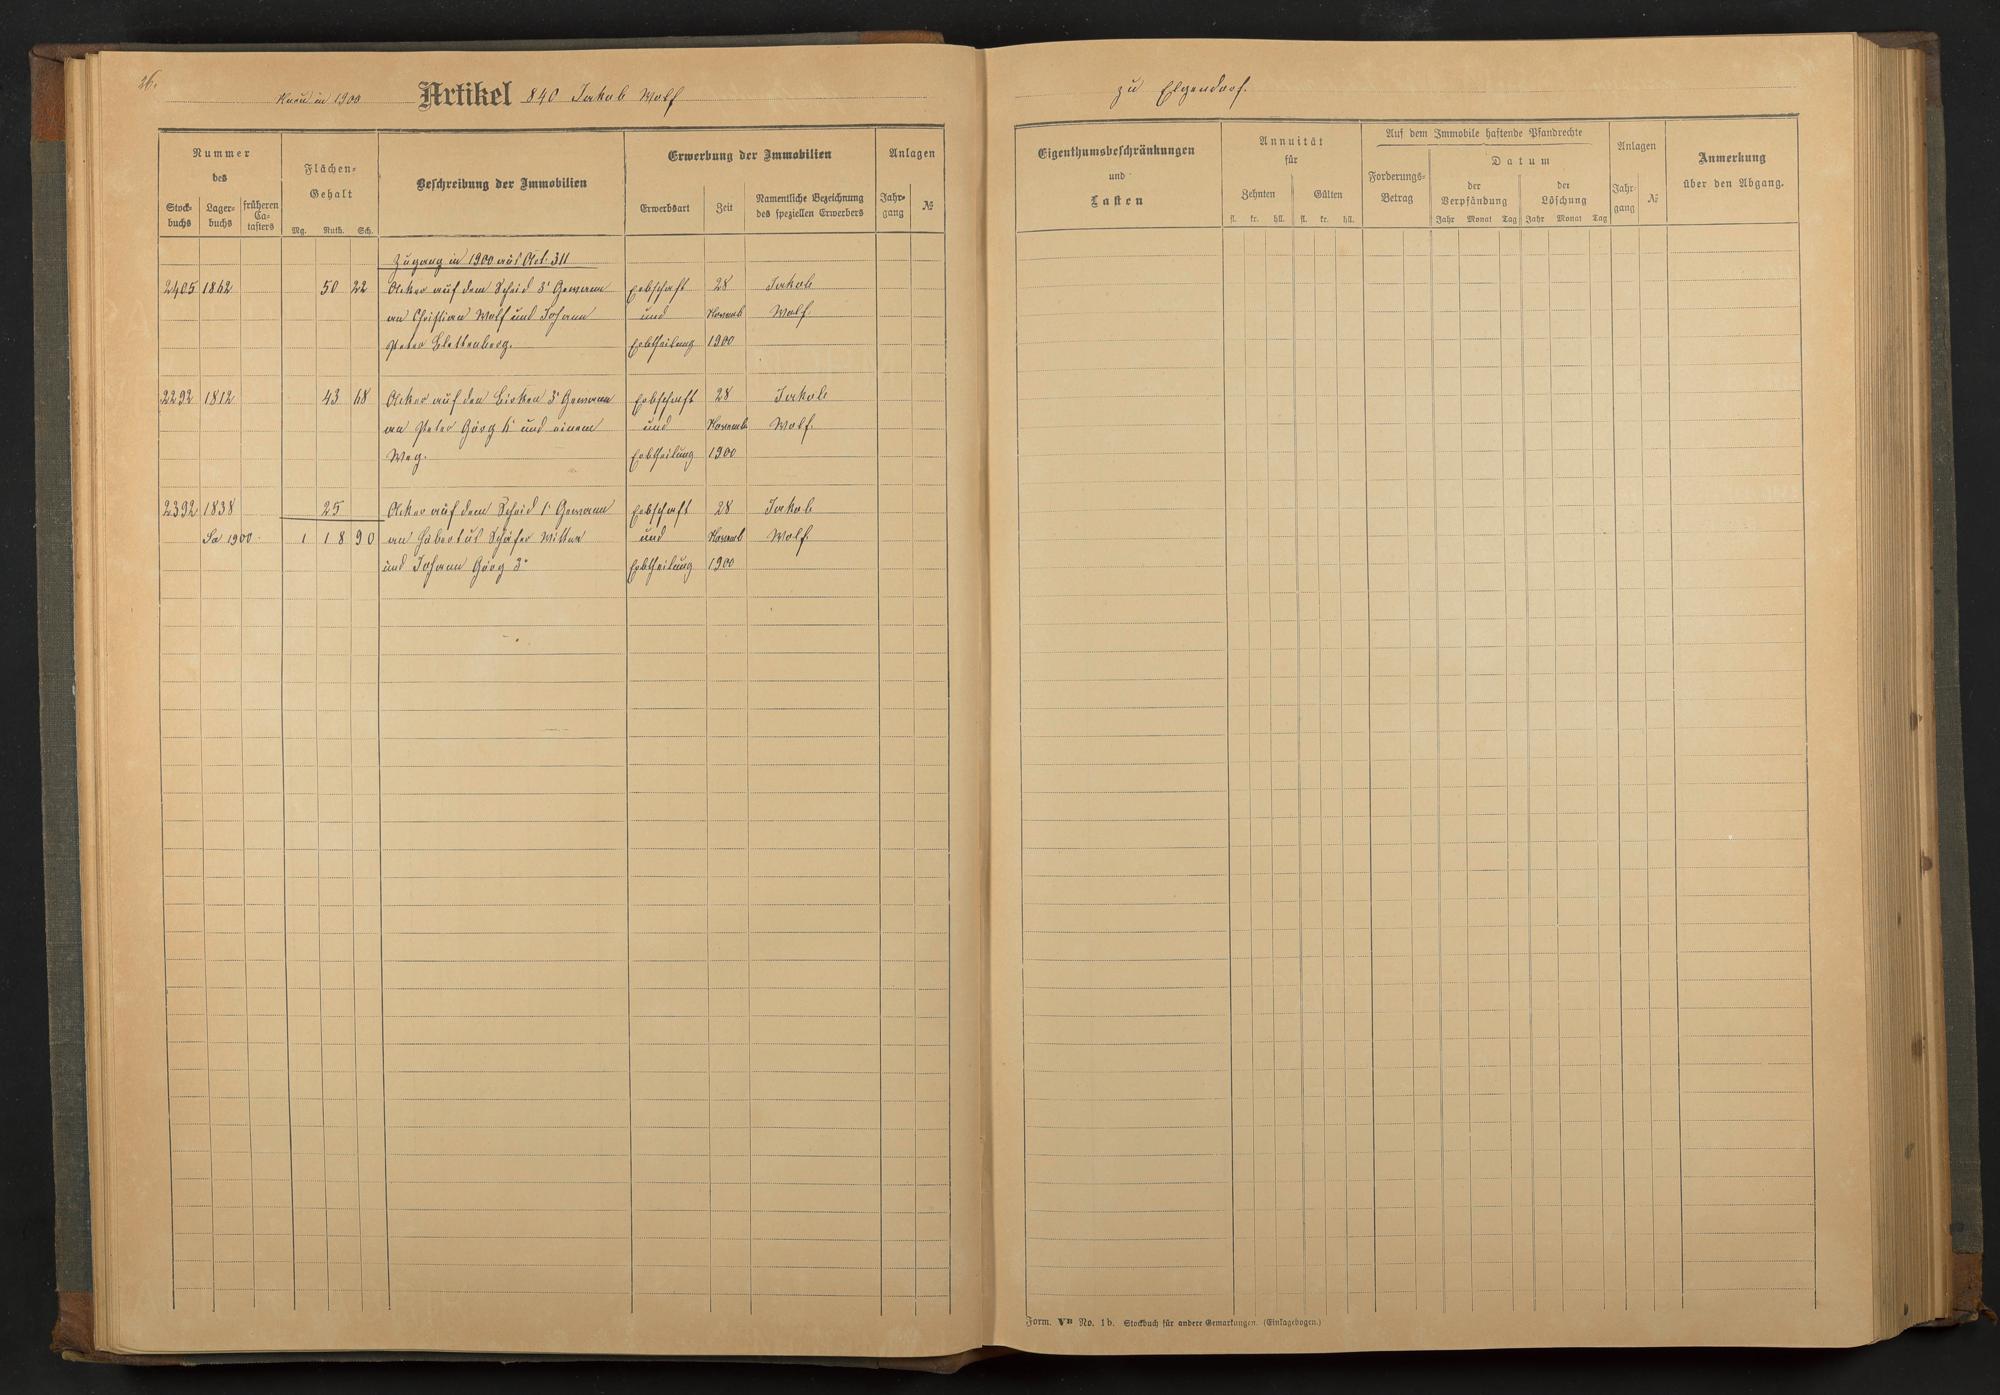 26.
Neu in 1900 Artikel 840 Jakob Wolf
Nummer des
Stock-buchs Lager-buchs früheren Ca-tasters
Flächen-Gehalt
Mg. Ruth. Sch.
Beschreibung der Immobilien
Erwerbung der Immobilien
Erwerbsart Zeit Namentliche Bezeichnung des speziellen Erwerbers
Anlagen
Jahr-gang №
Zugang in 1900 aus Art. 311
2405 1862 50 22 Acker auf dem Scheid 3r Gewann Erbschaft 28 Jakob
an Christian Wolf und Johann und Novemb Wolf.
Peter Blettenberg. Erbtheilung 1900
2292 1812 43 68 Acker auf den Birken 3r Gewann Erbschaft 28 Jakob
an Peter Görg 6r und einem und Novemb Wolf.
Weg. Erbtheilung 1900
2392 1838 25 Acker auf dem Scheid 1r Gewann Erbschaft 28 Jakob
Sa 1900 1 18 90 an Hubertus Schäfer Witwe und Novemb Wolf
und Johann Görg 3r Erbtheilung 1900
zu Elgendorf.
Eigenthumsbeschränkungen
und
Lasten
Annuität
für
Zehnten Gülten
fl. kr. hll. fl. kr. hll.
Auf dem Immobile haftende Pfandrechte
Forderungs-Betrag
Datum
der Verpfändung der Löschung
Jahr Monat Tag Jahr Monat Tag
Anlagen
Jahr-gang №
Anmerkung
über den Abgang.
Form. VB No. 1b. Stockbuch für andere Gemarkungen. (Einlagebogen.)